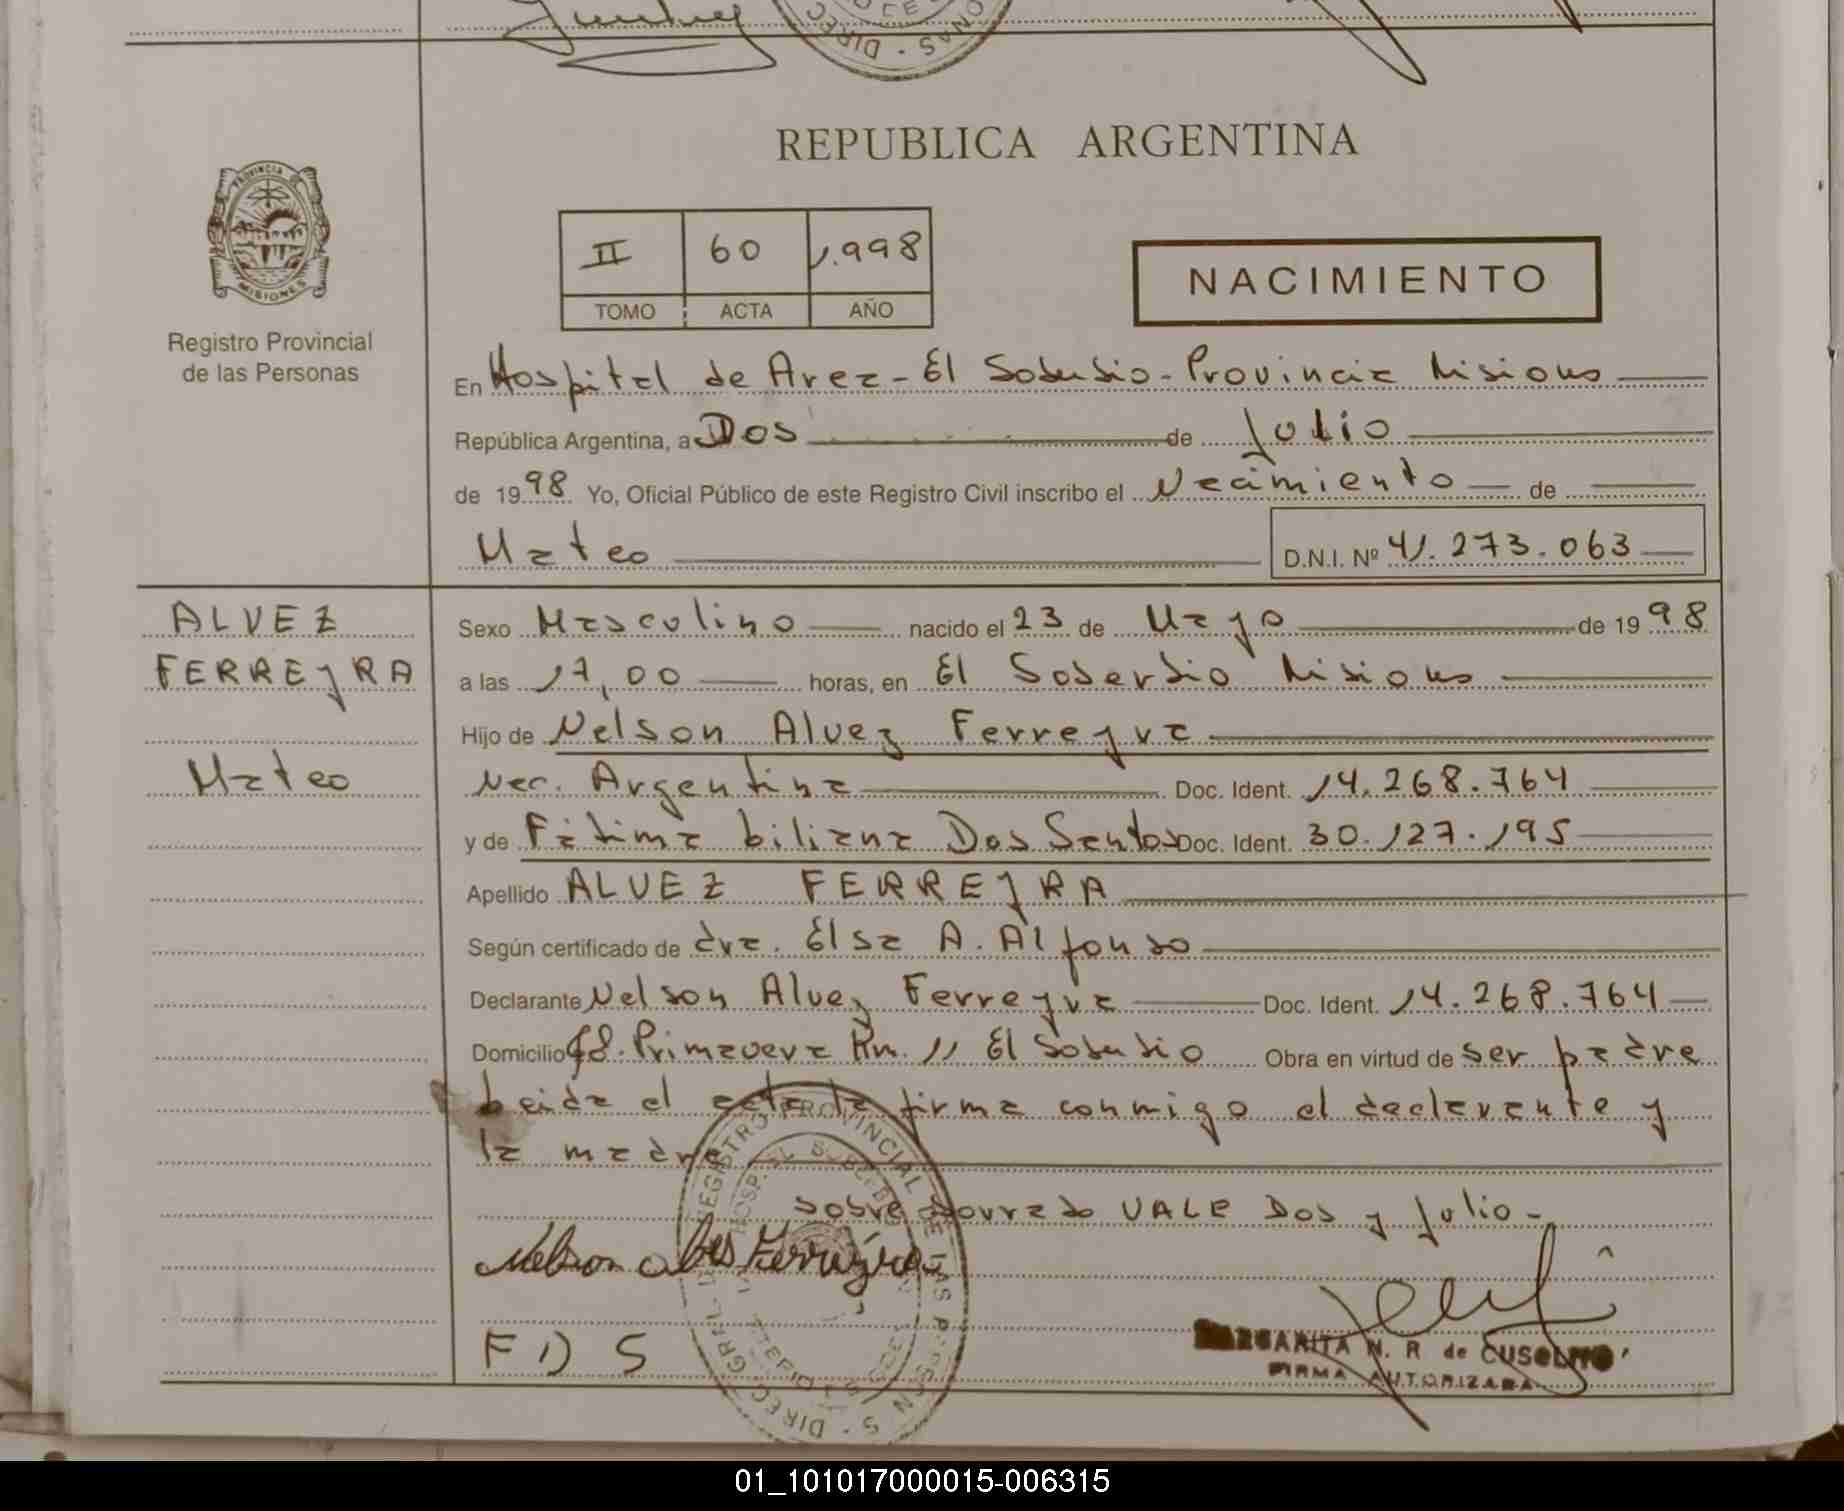 REPUBLICA ARGENTINA
PROVINCIA DE
MISIONES
Registro Provincial
de las Personas
II 60 1.998
TOMO ACTA AÑO
NACIMIENTO
En Hospital de Area - El Soberbio - Provincia Misiones
República Argentina, a Dos de Julio
de 1998 Yo, Oficial Público de este Registro Civil inscribo el Nacimiento de
Mateo D.N.I. Nº 41.273.063
ALVEZ
FERREYRA
Mateo
Sexo Masculino nacido el 23 de Mayo de 1998
a las 17,00 horas, en El Soberbio Misiones
Hijo de Nelson Alvez Ferreyra
Nac. Argentina Doc. Ident. 14.268.764
y de Fátima liliana Dos Santos Doc. Ident. 30.127.195
Apellido ALVEZ FERREYRA
Según certificado de dra. Elsa A. Alfonso
Declarante Nelson Alvez Ferreyra Doc. Ident. 14.268.764
Domicilio Primavera Km. 11 El Soberbio Obra en virtud de ser padre
leida el acta la firma conmigo el declarante y
la madre
sobre borrado VALE Dos y Julio -
Nelson Ferreyra
F D S
MARGARITA N. R de
FIRMA AUTORIZADA
REGISTRO PROVINCIAL DE LAS
01_101017000015-006315